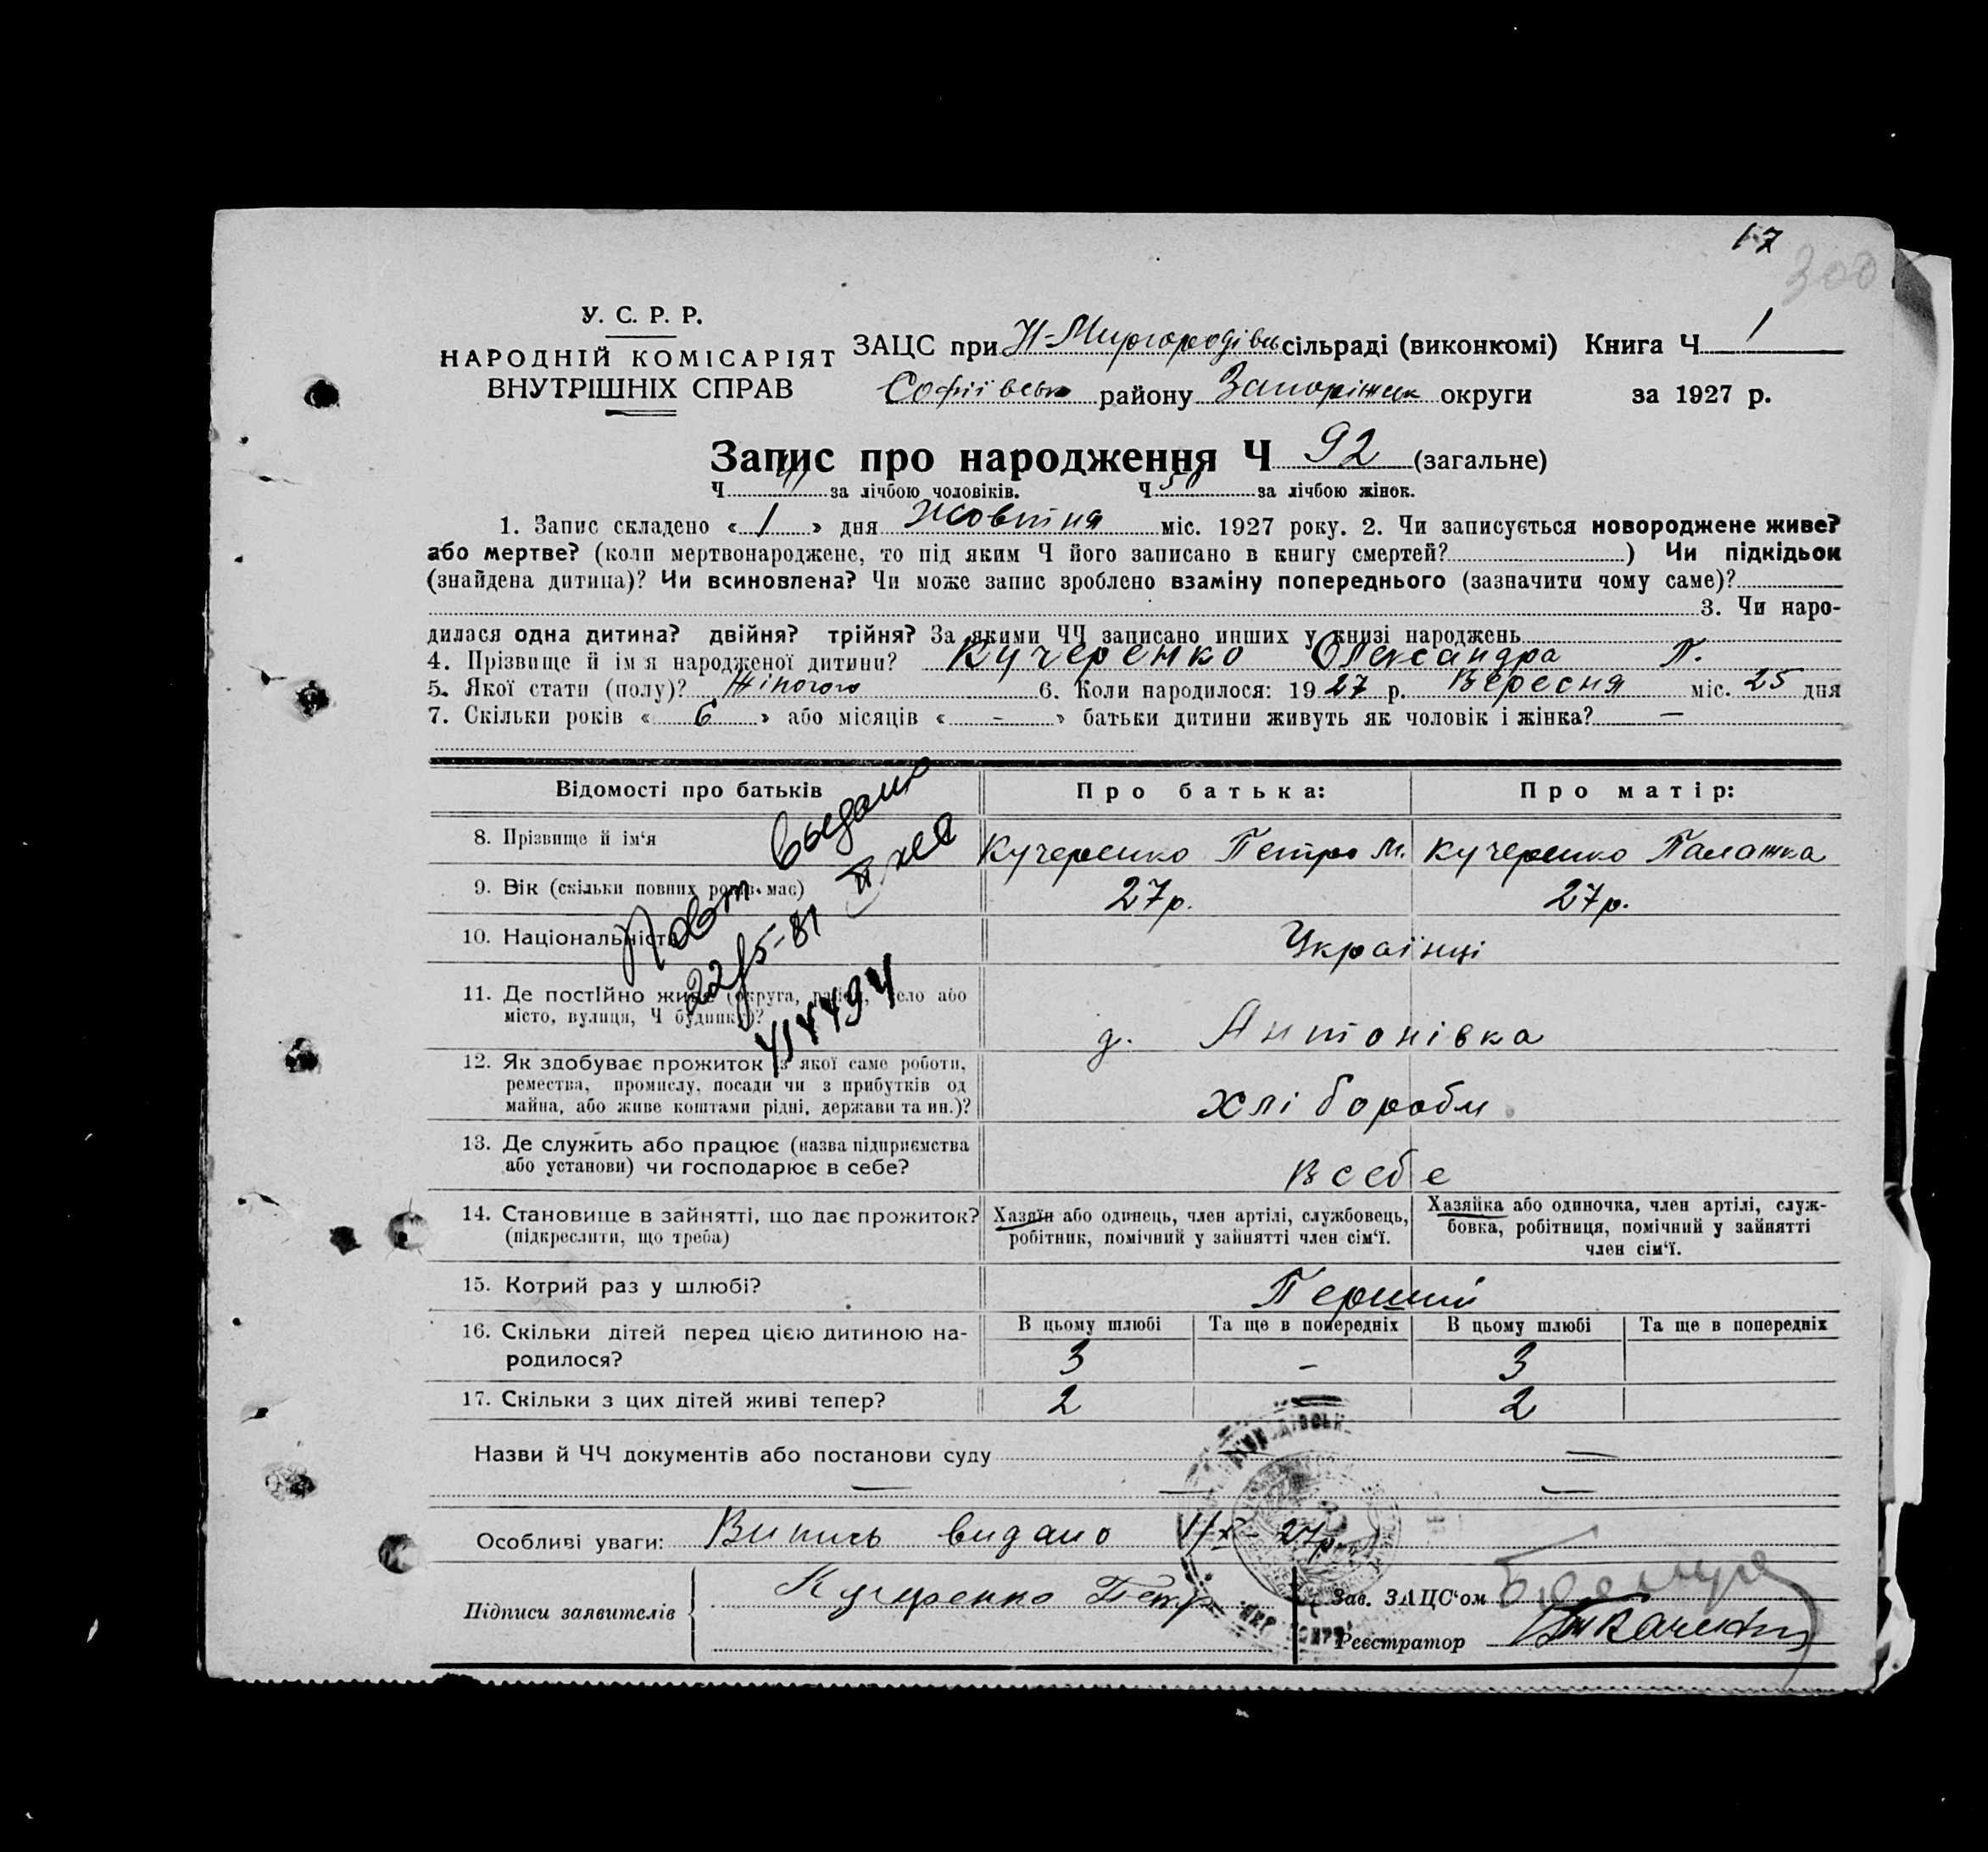 17
300
У. С. Р. Р.
НАРОДНІЙ КОМІСАРІЯТ
ВНУТРІШНІХ СПРАВ
ЗАЦС при Н-Миргородівсь сільраді (виконкомі) Книга Ч 1
Софіївсько району Запоріжск округи за 1927 р.
Запис про народження Ч 92 (загальне)
Ч 41 за лічбою чоловіків. Ч 51 за лічбою жінок.
1. Запис складено « 1 » дня Жовтня міс. 1927 року. 2. Чи записується новороджене живе?
або мертве? (коли мертвонароджене, то під яким Ч його записано в книгу смертей? ) Чи підкідьок
(знайдена дитина)? Чи всиновлена? Чи може запис зроблено взаміну попереднього (зазначити чому саме)?
3. Чи наро-
дилася одна дитина? двійня? трійня? За якими ЧЧ записано инших у книзі народжень
4. Прізвище й ім'я народженої дитини? Кучеренко Олександра П.
5. Якої стати (полу)? Жіночого 6. Коли народилося: 1927 р. Вересня міс. 25 дня
7. Скільки років « 6 » або місяців « - » батьки дитини живуть як чоловік і жінка? —
Відомості про батьків Про батька: Про матір:
8. Прізвище й ім'я Кучеренко Петро М. Кучеренко Палажка
9. Вік (скільки повних років має) 27р. 27р.
10. Національність Українці
11. Де постійно живе (округа, район, село або
місто, вулиця, Ч будинку)? д. Антонівка
12. Як здобуває прожиток (з якої саме роботи,
ремества, промислу, посади чи з прибутків од
майна, або живе коштами рідні, держави та ин.)? Хлібороби
13. Де служить або працює (назва підприємства
або установи) чи господарює в себе? В себе
14. Становище в зайнятті, що дає прожиток?
(підкреслити, що треба)
Хазяїн або одинець, член артілі, службовець,
робітник, помічний у зайнятті член сім'ї.
Хазяйка або одиночка, член артілі, служ-
бовка, робітниця, помічний у зайнятті
член сім'ї.
15. Котрий раз у шлюбі? Перший
16. Скільки дітей перед цією дитиною на-
родилося?
В цьому шлюбі Та ще в попередніх В цьому шлюбі Та ще в попередніх
3 - 3
17. Скільки з цих дітей живі тепер? 2 2
Повт. выдано
22/5-81
414494
Назви й ЧЧ документів або постанови суду
Особливі уваги: Випись видано 1/X-27р.
Підписи заявителів Кучеренко Петр
Зав. ЗАЦС'ом
Реєстратор